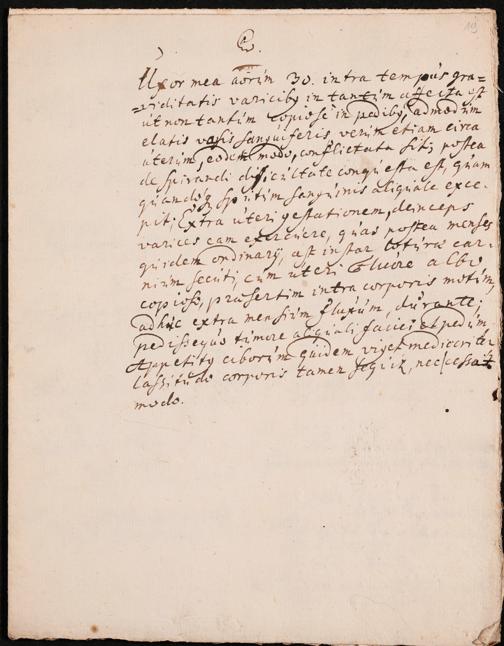 119
Uxor mea añorum 30. intra tempus gra¬
=viditatis varicibꝫ in tantum affecta est
ut non tantum copiose in pedibꝫ, admodum
elatis vasis sanguiferis, verum etiam circa
uterum, eodem modo, conflictata sit; postea
de spirandi dificultate conquesta est, quam
quandoqꝫ sputum sanguinis aliquale exce-
pit; Extra uteri gestationem, deinceps
varices eam exercuere, quas postea menses
quidem ordinarÿ, ast instar loturæ car-
nium secuti, cum uteri fluore albo
copioso, præsertim intra corporis motum,
adhuc extra mensium fluxum, durante;
pedissequo tumore aliquali faciei et pedum.
Appetitq ciborum quidem viget mediocriter
lassitudo corporis tamen sequit, nec cessat
modo.